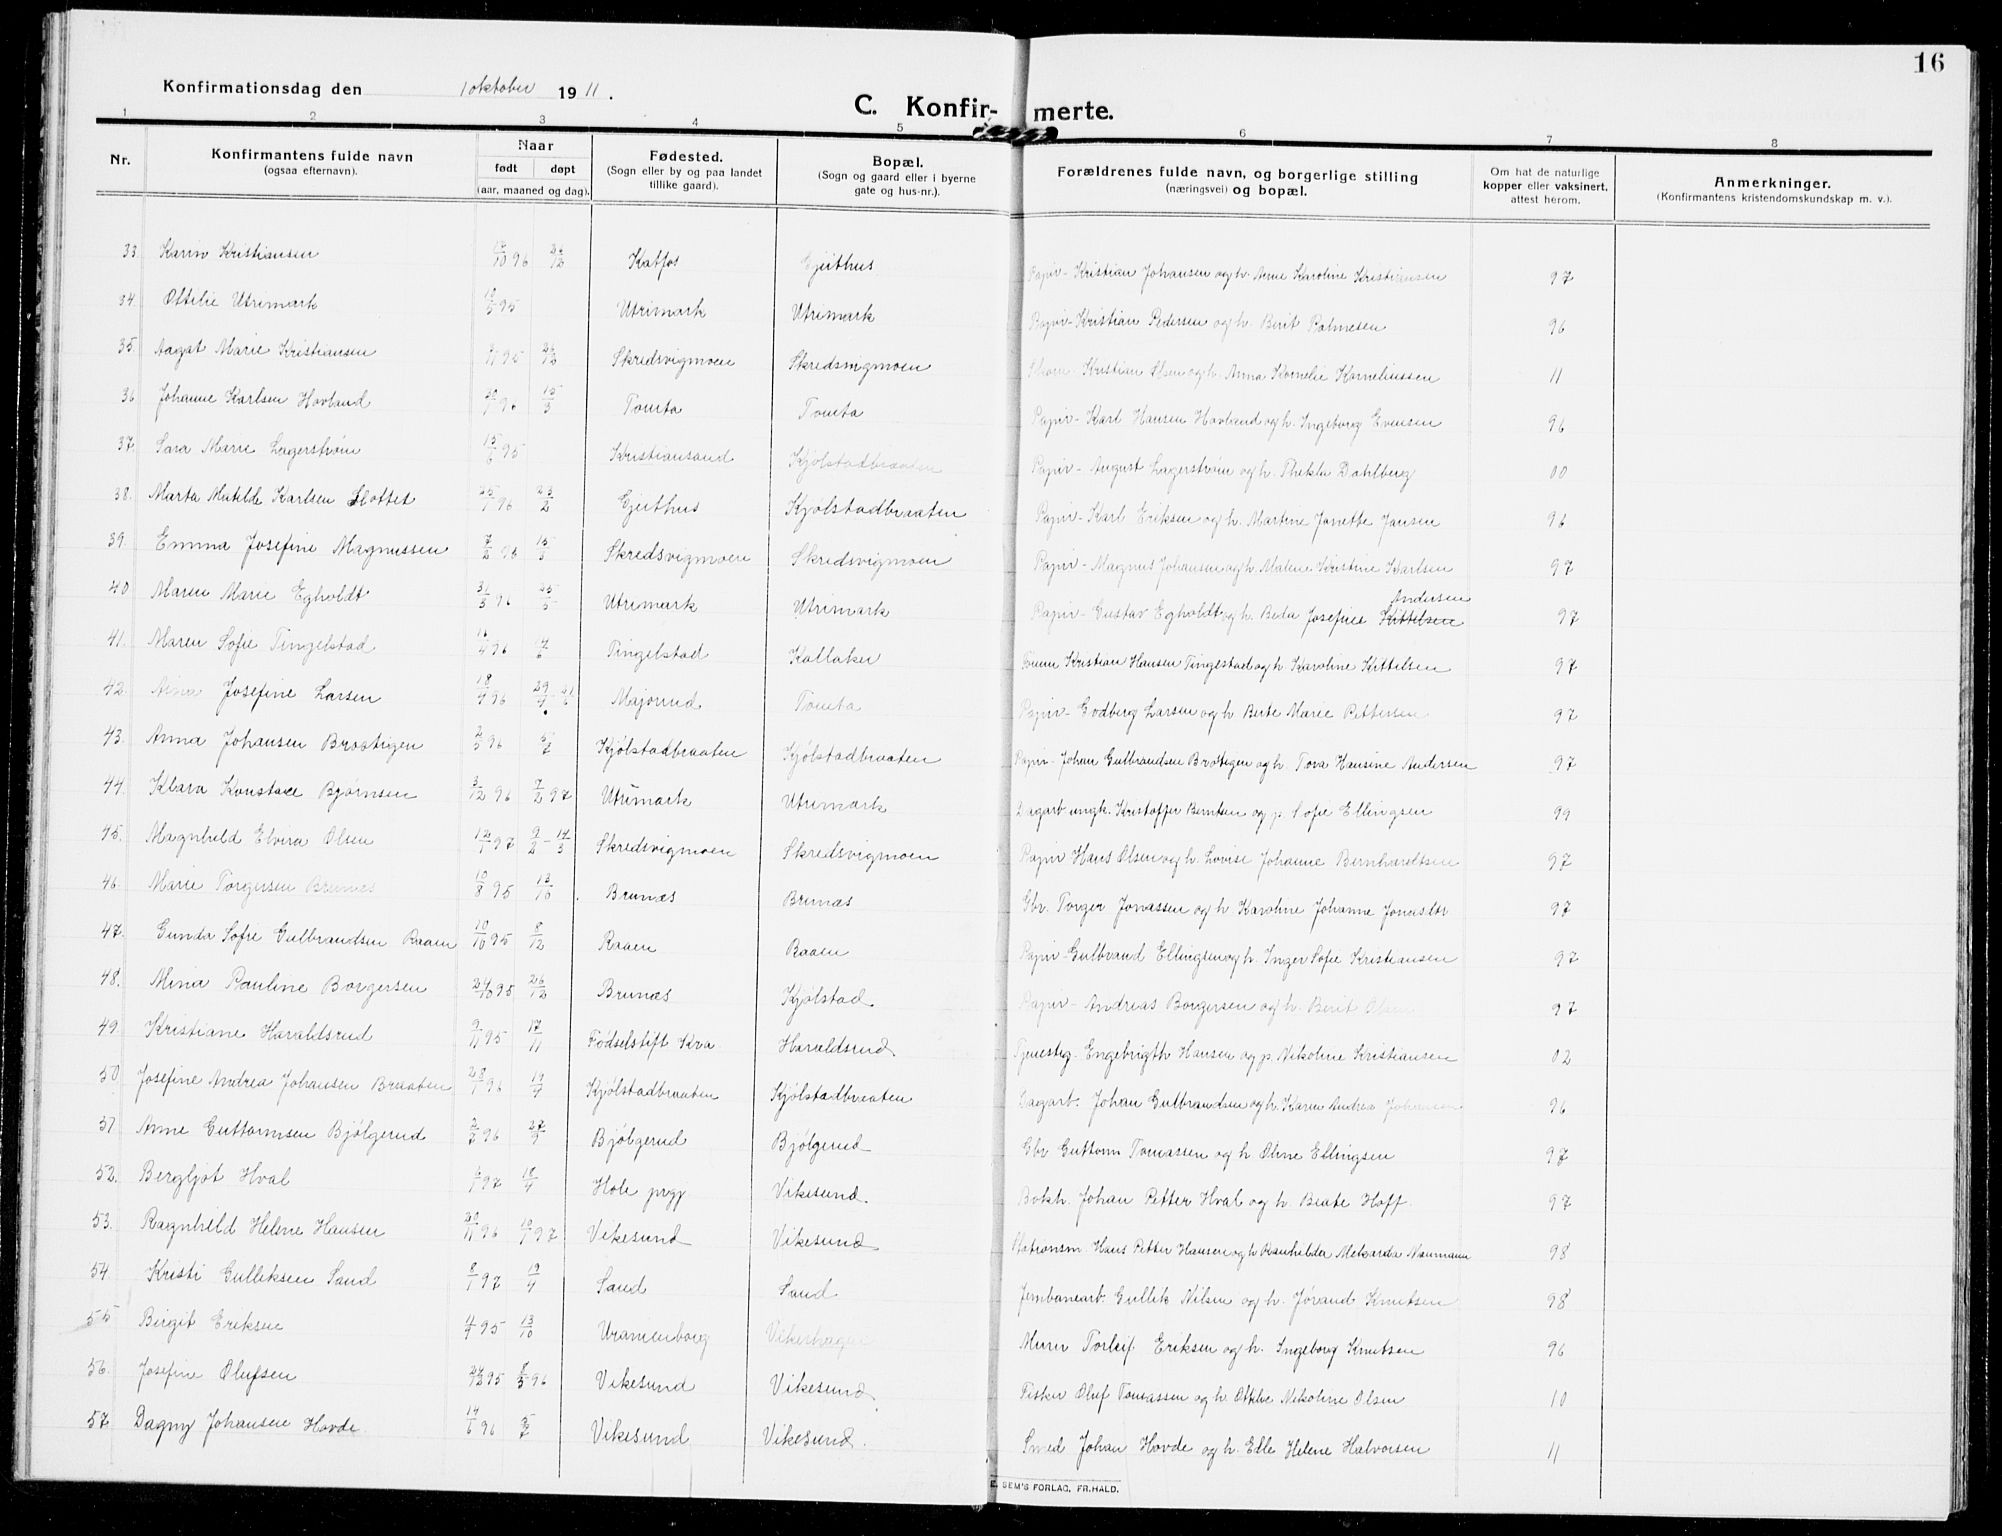 16
Konfirmationsdag den 1 oktober 1911.
C. Konfir- merte.
1 2 3 4 5 6 7 8
Nr. Konfirmantens fulde navn (ogsaa efternavn). Naar født døpt (aar, maaned og dag). Fødested. (Sogn eller by og paa landet tillike gaard). Bopæl. (Sogn og gaard eller i byerne gate og hus-nr.). Forældrenes fulde navn, og borgerlige stilling (næringsvei) og bopæl. Om hat de naturlige kopper eller vaksinert, attest herom. Anmerkninger. (Konfirmantens kristendomskundskap m. v.).
33. Karin Kristiansen 96 Katfos Gjeithus Papir- Kristian Johansen og h. Anne Karoline Kristiansen 97
34. Ottilie Utrimark 95 Utrimark Utrimark Papir- Kristian Pedersen og h. Berit Palmesen 96
35. Aagat Marie Kristiansen 95 Skredsvigmoen Skredsvigmoen Kristian Olsen og h. Anna Kornelie Korneliussen 11
36 Johanne Karlsen Hovland 96 15/3 Tomta Tomta Papir- Karl Hansen Hovland og h. Ingeborg Evensen 96
37. Sara Marie Lagerstrøm 95 Kristiansand Kjølstadbraaten Papir- August Lagerstrøm og h. Thekla Dahlberg 00
38. Marta Matilde Karlsen Slottet 25/1 96 23/2 Gjeithus Kjølstadbraaten Papir- Karl Eriksen og h. Martine Janette Jansen 96
39. Emma Josefine Magnussen 7/2 96 Skredsvigmoen Skredsvigmoen Papir- Magnus Johansen og h. Malene Kristine Karlsen 97
40 Maren Marie Egholdt 96 25/5 Utrimark Utrimark Papir- Gustav Egholdt og h. Berta Josefine Kittelsen Andersen 97
41. Maren Sofie Tingelstad 16/4 96 Tingelstad Kallaker Tingestad og h. Karoline Kittelsen 97
42. Josefine Larsen 18/4 96 29/4 Majorud Tomta Papir- Godberg Larsen og h. Berte Marie Pettersen 97
43. Anna Johansen Brastigen 96 5/7 Kjølstadbraaten Kjølstadbraaten Papir- Johan Gulbrandsen Brotigen og h. Tora Hansine Andersen 97
44. Klara Konstace Bjørnsen 3/12 96 7/2 97 Utrimark Utrimark Dagarb. ungk. Kristoffer Berntsen og p. Sofie Ellingsen 99
45. Magnhild Elvira Olsen 12/1 97 9/2 - 14/3 Skredsvigmoen Skredsvigmoen Papir Hans Olsen og h. Lovise Johanne Bernhardtsen 97
46. Marie Torgersen Brunæs 10/8 95 13/10 Brunæs Brunæs Gbr. Torger Jonassen og h. Karoline Johanne Jonasdtr 97
47. Gunda Sofie Gulbrandsen Raaen 10/10 95 8/12 Raaen Raaen Papir- Gulbrand Ellingsen og h. Inger Sofie Kristiansen 97
48. Mina Pauline Borgersen 24/10 95 26/12 Brunæs Kjølstad Papir- Andreas Borgersen og h. Berit Olsen 97
49. Kristiane Haraldsrud 9/11 95 17/11 Fødselstift Kra Haraldsrud Tjenestg. Engebrigth Hansen og p. Nikoline Kristiansen 02
50 Josefine Andrea Johansen Braaten 28/1 96 19/4 Kjølstadbraaten Kjølstadbraaten Dagarb. Johan Gulbrandsen og h. Karen Andrea Johansen 96
51 Anne Guttormsen Bjølgerud 96 27/9 Bjølgerud Bjølgerud Gbr Guttorm Tomassen og h Oline Ellingsen 97
52. Bergljot Hval 97 18/4 Hole prgj Vikesund Bokh. Johan Petter Hval og h. Beate Hoff 97
53. Ragnhild Helene Hansen 96 97 Vikesund Vikesund Stationsm Hans Petter Hansen og h Ranhilder Mekarda Naumann 98
54. Kristi Gulliksen Sand 8/1 97 19/4 Sand Sand Jernbanearb. Gullik Nilsen og h. Jørand Knutsen 98
55 Birgit Eriksen 95 13/10 Uranienborg Vikerhagen Murer Torleif Eriksen og h. Ingeborg Knutsen 96
56. Josefine Olufsen 95 8/3 96 Vikesund Vikesund Fisker Oluf Tomassen og h. Ottilie Nikoline Olsen 10
57. Dagny Johansen Hovde 14/6 96 Vikesund Vikesund. Smed Johan Hovde og h. Elle Helene Halvorsen 11
E. SEM'S FORLAG, FR.HALD.